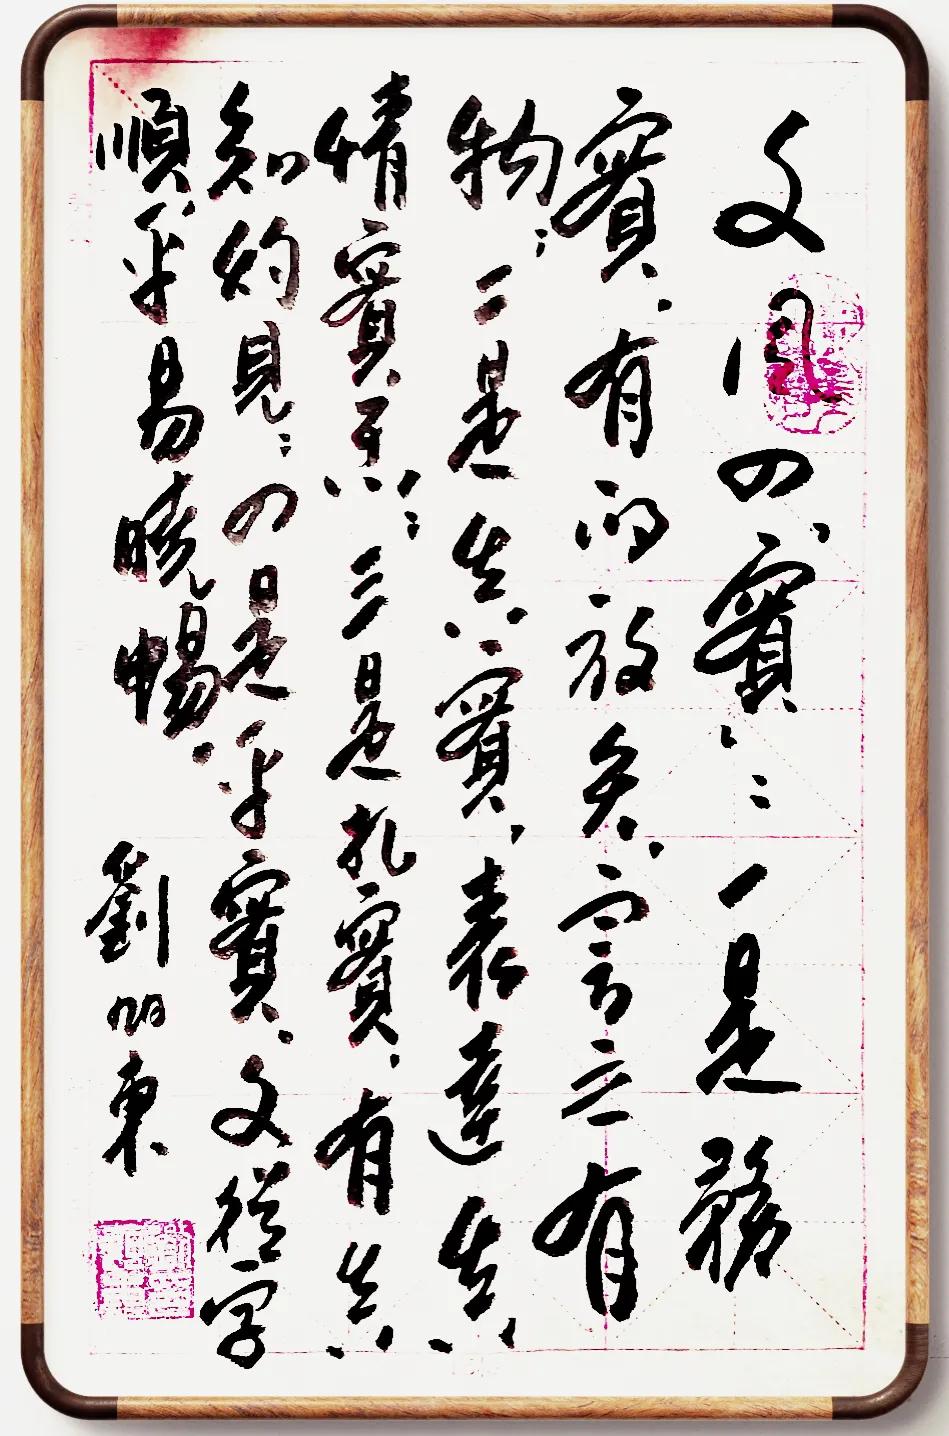 文风四實：一是務
實，有的放矢，言之有
物；二是真實，表達真
情實；三是扎實，有真
知灼見；四是平實，文從字
順，平易曉暢。
劉東